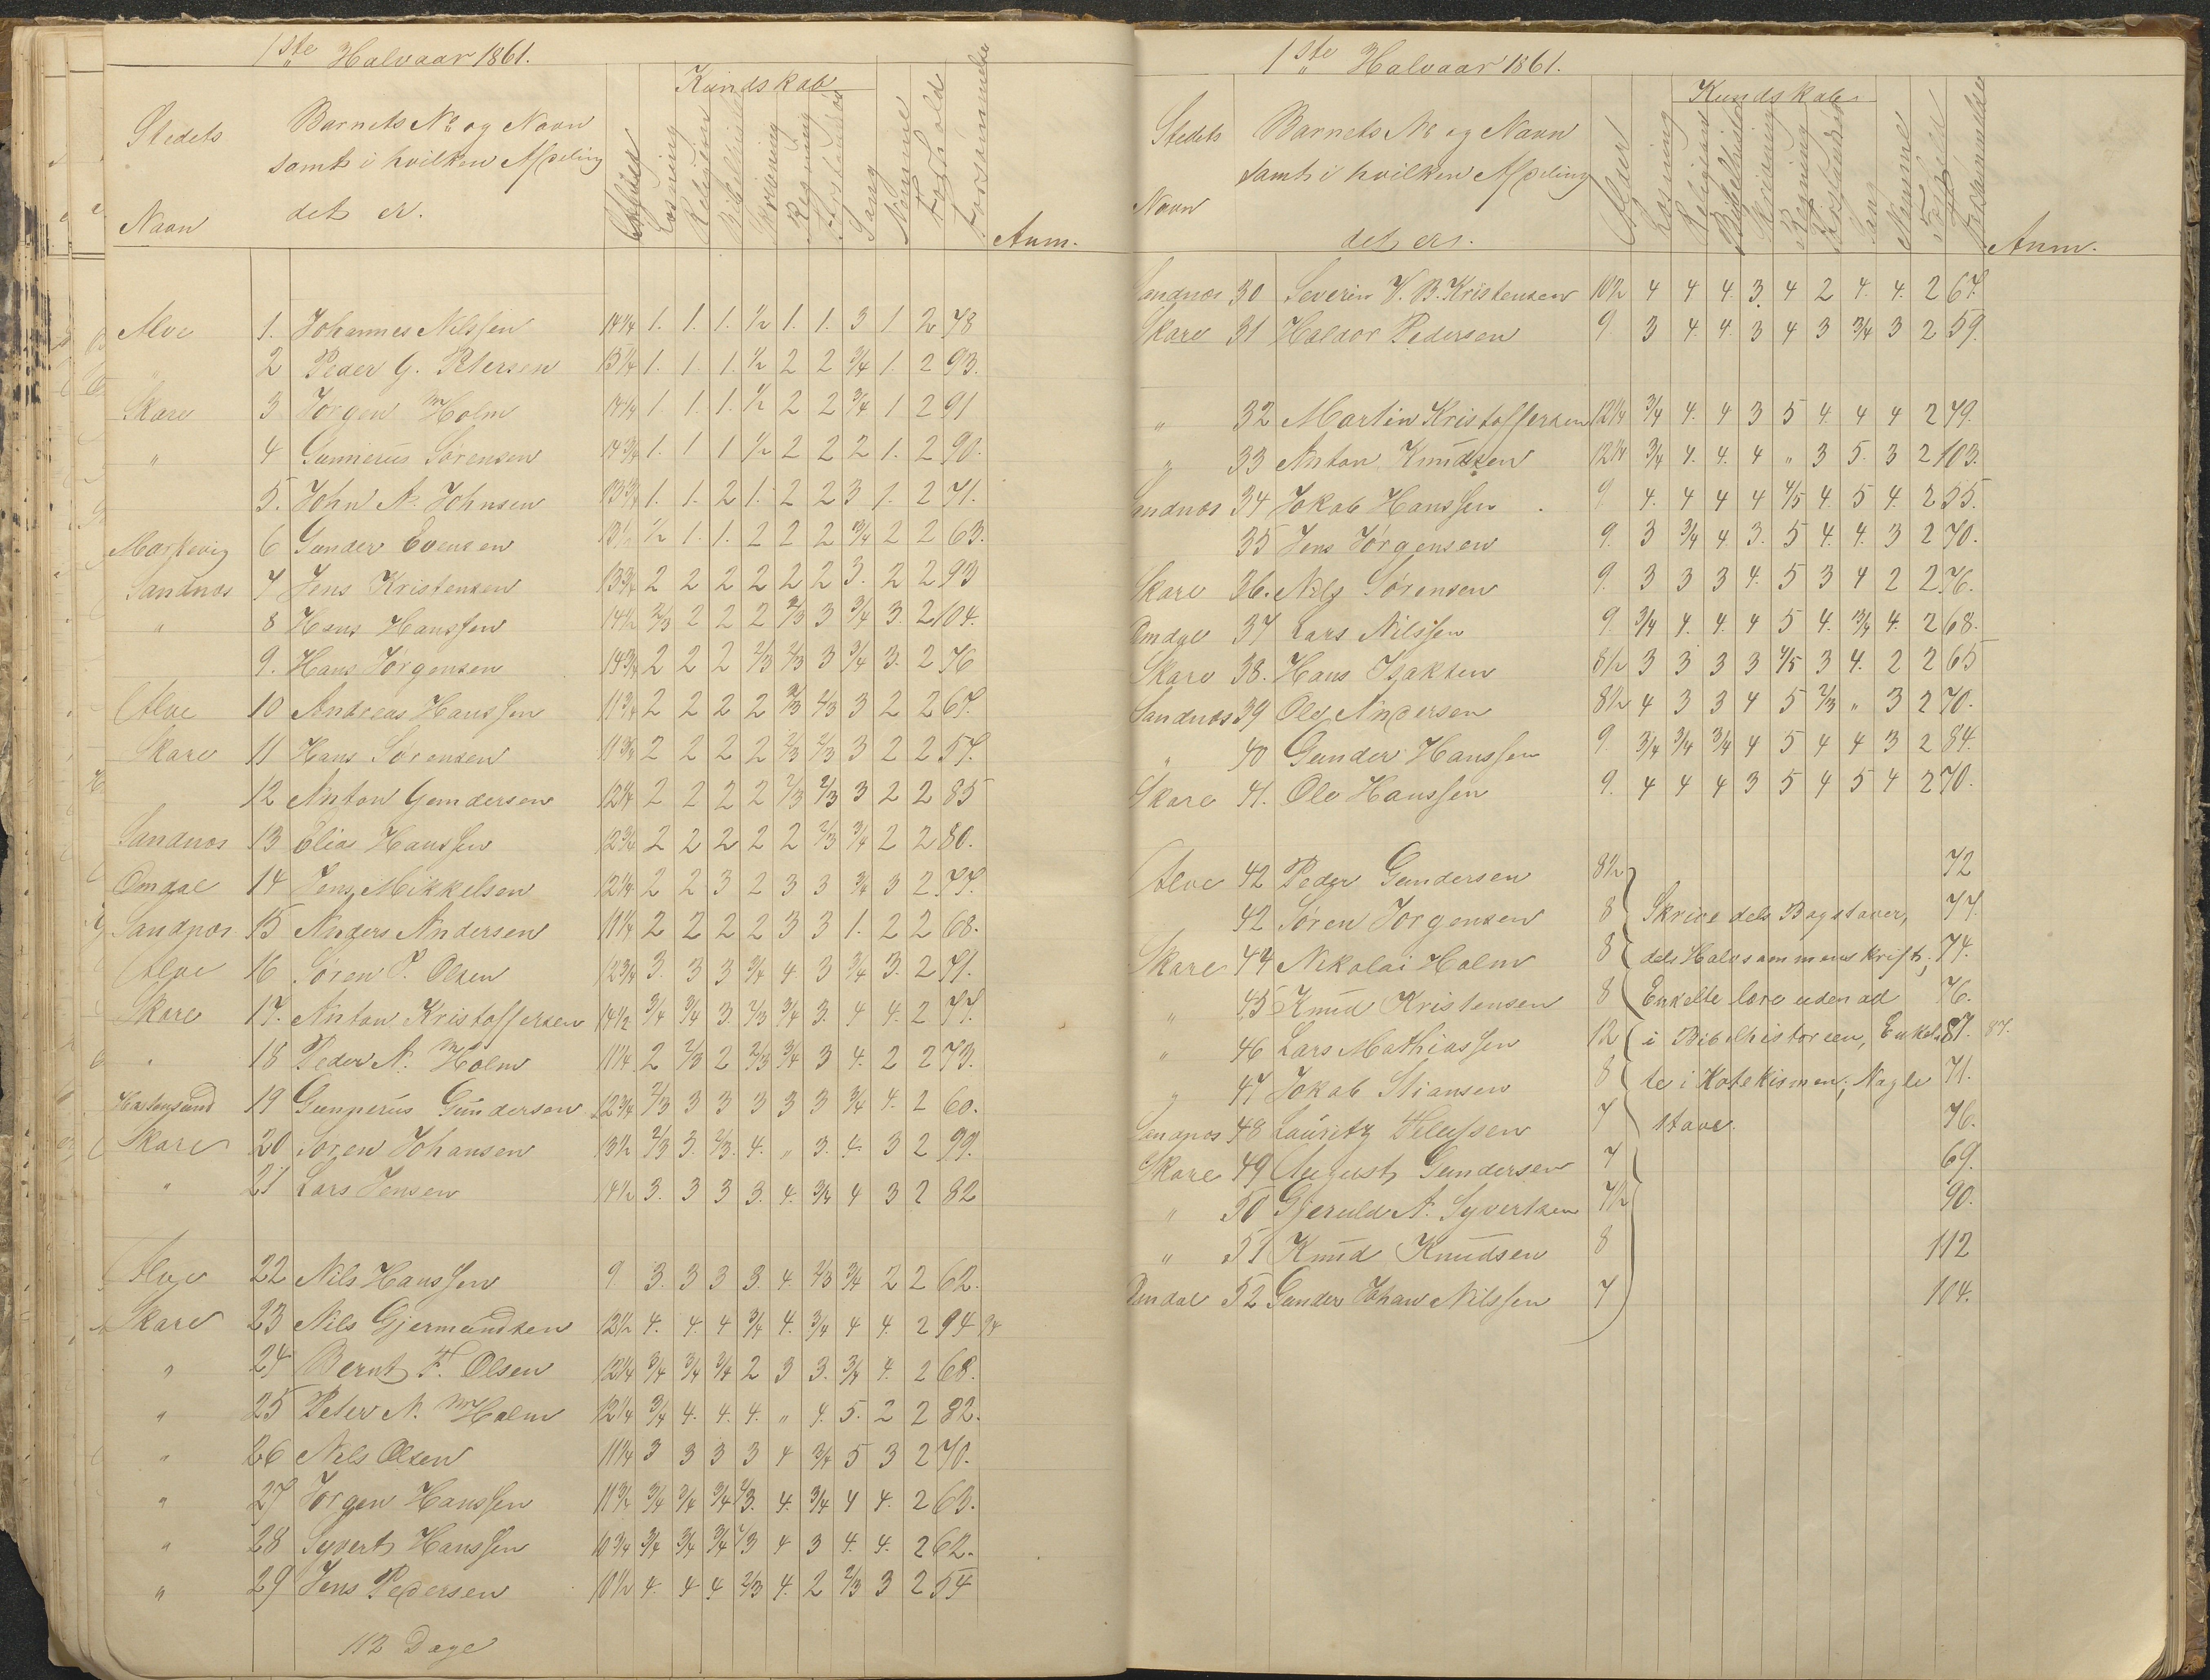 1ste Halvaar 1861.
Kundskab
Stedets Navn
Barnets No og Navn
samt i hvilken Afdeling
det er.
Læsning Religion Skrivning Regning Sang Nemme Forhold Forsømmelse Anm.
Alve 1. Johannes Nilssen 14 1/4 1. 1. 1. 1/2 1. 1. 3 1 2 78
" 2 Peder G. Petersen 13 1/4 1. 1. 1. 1/2 2 2 3/4 1. 2 93.
Skare 3 Jørgen Holm 14 1/4 1 1. 1. 1/2 2 2 3/4 1 2 91
" 4 Gunnerus Sørensen 14 3/4 1. 1 1 1/2 2 2 2 1. 2 90.
5. John N. Johnsen 13 3/4 1. 1. 2 1. 2 2 3 1. 2 71.
6 Gunder Evensen 13 1/2 1/2 1. 1. 2 2 2 3/4 2 2 63.
Sandnæs 7 Jens Kristensen 13 3/4 2 2 2 2 2 2 3. 2 2 93
" 8 Hans Hanssen 14 1/2 2/3 2 2 2 2/3 3 3/4 3. 2 104.
9. Hans Jørgensen 14 3/4 2 2 2 2/3 2/3 3 3/4 3. 2 76
Alve 10 Andreas Hanssen 11 3/4 2 2 2 2 2/3 2/3 3 2 2 67.
Skare 11 Hans Sørensen 11 3/4 2 2 2 2 2/3 2/3 3 2 2 57.
12 Anton Gundersen 12 1/4 2 2 2 2 2/3 2/3 3 2 2 85
Sandnæs 13 Elias Hanssen 12 3/4 2 2 2 2 2 2/3 3/4 2 2 80.
Omdal 14 Jens Mikkelsen 12 1/4 2 2 3 2 3 3 3/4 3 2 77.
Sandnæs 15 Anders Andersen 11 1/4 2 2 2 2 3 3 1. 2 2 68.
Alve 16 Søren P. Olsen 12 3/4 3. 3 3 3/4 4 3 3/4 3. 2 71.
Skare 17. Anton Kristoffersen 14 1/2 3/4 3/4 3. 2/3 3/4 3. 4 4. 2 77.
" 18 Peder N. Holm 11 1/4 2 2/3 2 2/3 3/4 3 4. 2 2 73.
19 Gunnerus Gundersen 12 3/4 2/3 3 3 3 3 3 3/4 4. 2 60.
Skare 20 Søren Johansen 13 1/2 2/3 3. 2/3. 4. " 3. 4. 3 2 99.
" 21 Lars Jensen 14 1/2 3. 3 3 3. 4. 3/4 4 3 2 82
Alve 22 Nils Hanssen 9 3. 3 3 3. 4. 2/3 3/4 2 2 62.
Skare 23 Nils Gjermundsen 13 1/2 4. 4. 4 3/4 4. 3/4 4 4. 2 94 94
" 24 Bernt F. Olsen 12 1/4 3/4 3/4 3/4 2 3 3. 3/4 4. 2 68.
" 25 Peter N. Holm 12 1/4 3/4 4. 4. 4. " 4. 5. 2 2 82.
" 26 Nils Olsen 11 1/4 3 3 3 3 4 3/4 5 3 2 70.
" 27 Jørgen Hanssen 11 3/4 3/4 3/4 3/4 2/3. 4. 3/4 4 4. 2 63.
" 28 Syvert Hanssen 10 3/4 3/4 3/4 3/4 2/3 4 3 4. 4. 2 62.
" 29 Jens Pedersen 10 1/2 4. 4 4 2/3 4. 2 2/3 3 2 54
112 Dage
1ste Halvaar 1861.
Kundskab
Stedets Navn
Barnets No og Navn
samt i hvilken Afdeling
det er.
Alder Læsning Religion Bibelhistorie Skrivning Regning Sang Nemme Forhold Forsømmelse Anm.
Sandnæs 30 Severin V. B. Kristensen 10 1/2 4 4 4. 3. 4 2 4. 4. 2 67.
Skare 31 Haldor Pedersen 9. 3 4. 4. 3 4 3 3/4 3 2 59.
" 32 Martin Kristoffersen 12 1/4 3/4 4. 4 3 5 4. 4 4 2 79.
" 33 Anton Knudsen 12 1/4 3/4 4. 4. 4 " 3 5. 3 2 103.
Sandnæs 34 Jakob Hanssen 9 4. 4 4 4 4/5 4. 5 4. 2 55.
35 Jens Jørgensen 9. 3 3/4 4. 3. 5 4. 4. 3 2 70.
Skare 36. Nils Sørensen 9. 3 3 3 4. 5 3 4 2 2 76.
Omdal 37 Lars Nilssen 9 3/4 4. 4. 4 5 4. 3/4 4. 2 68.
Skare 38. Hans Isaksen 8 1/2 3 3 3 3 4/5 3 4. 2 2 65
Sandnæs 39 Ole Andersen 8 1/2 4 3 3 4 5 2/3 " 3 2 70.
" 40 Gunder Hanssen 9. 3/4 3/4 3/4 4 5 4 4 3 2 84.
Skare 41. Ole Hanssen 9. 4 4 4 3 5 4 5 4 2 70.
Alve 42 Peder Gundersen 8 1/2 72
42 Søren Jørgensen 8 Skrive dels Bogstaver, 77.
Skare 44 Nikolai Holm 8 dels Halvsammenskrift; 74.
" 45 Knud Kristensen 8 Enkelte lære uden ad 76.
" 46 Lars Mathiassen 12 i Bibelhistorien, Enkel- 87. 87.
" 47 Jakob Stiansen 8 te i Katekismen; Nogle 71.
Sandnæs 48 Lauritz 7 stave. 76.
Skare 49 August Gundersen 7 69.
" 50 Gjeruld A. Syvertsen 7 1/2 90.
" 51 Knud Knudsen 8 112
Omdal 52 Gunder Johan Nilssen 7 104.